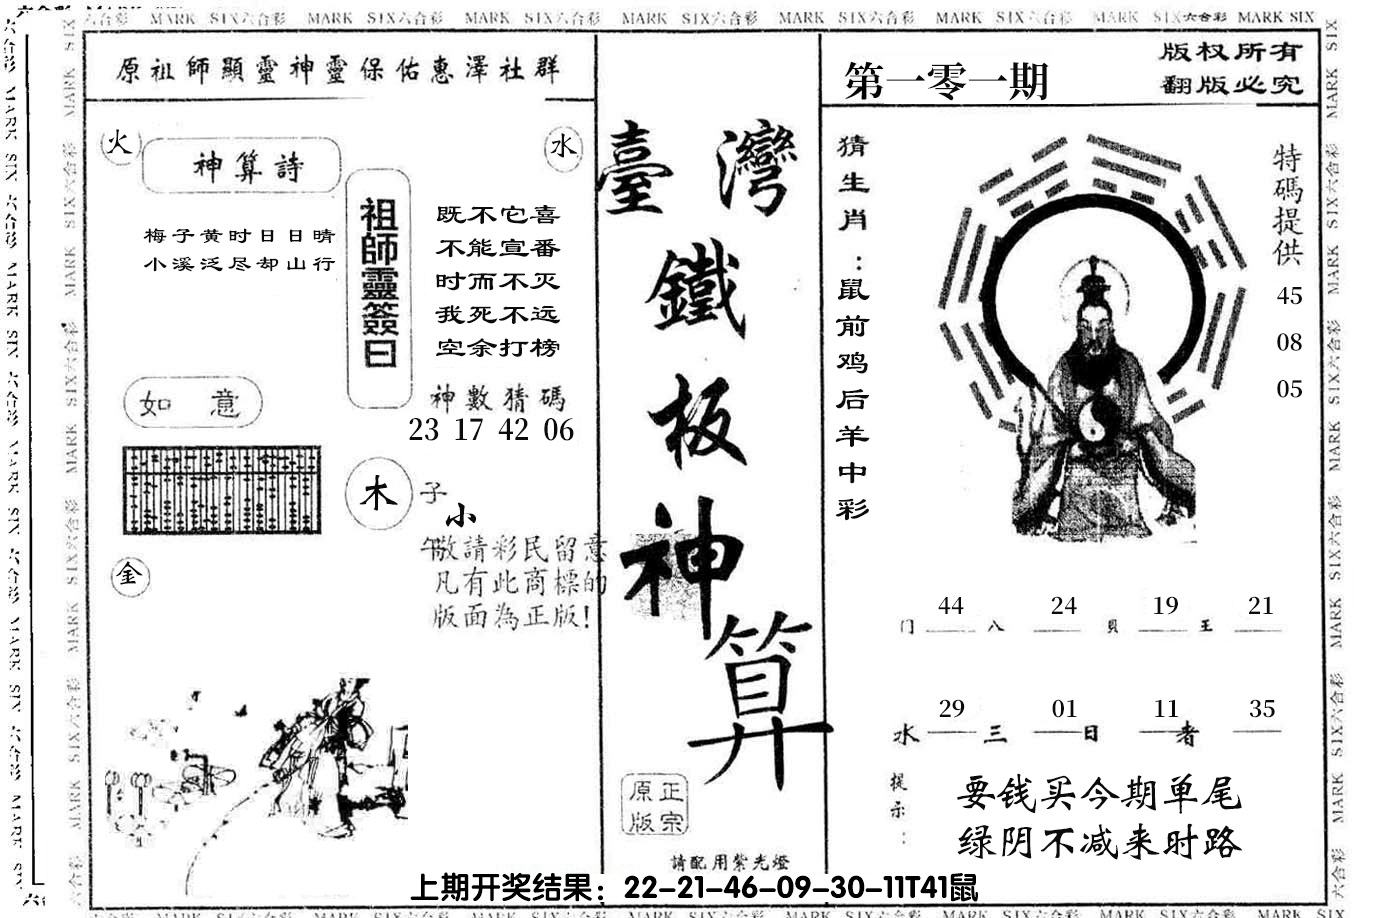 MARK SIX六合彩 MARK SIX六合彩 MARK SIX六合彩 MARK SIX六合彩 MARK SIX六合彩 MARK SIX六合彩 MARK SIX六合彩 MARK SIX
原祖師顯靈神靈保佑惠澤社群
火
水
神算詩
梅子黄时日日晴
小溪泛尽却山行
祖師靈簽曰
既不它喜
不能宣番
时而不灭
我死不远
空余打榜
神數猜碼
23 17 42 06
如意
木
子
小
午
敬請彩民留意
凡有此商標的
版面為正版!
金
臺灣
鐵
板
神
算
原正
版宗
請配用紫光燈
第一零一期
版权所有
翻版必究
猜生肖:鼠前鸡后羊中彩
特碼提供
45
08
05
44 24 19 21
门 八 貝 王
29 01 11 35
水 三 日 者
提示:
要钱买今期单尾
绿阴不减来时路
上期开奖结果：22-21-46-09-30-11T41鼠